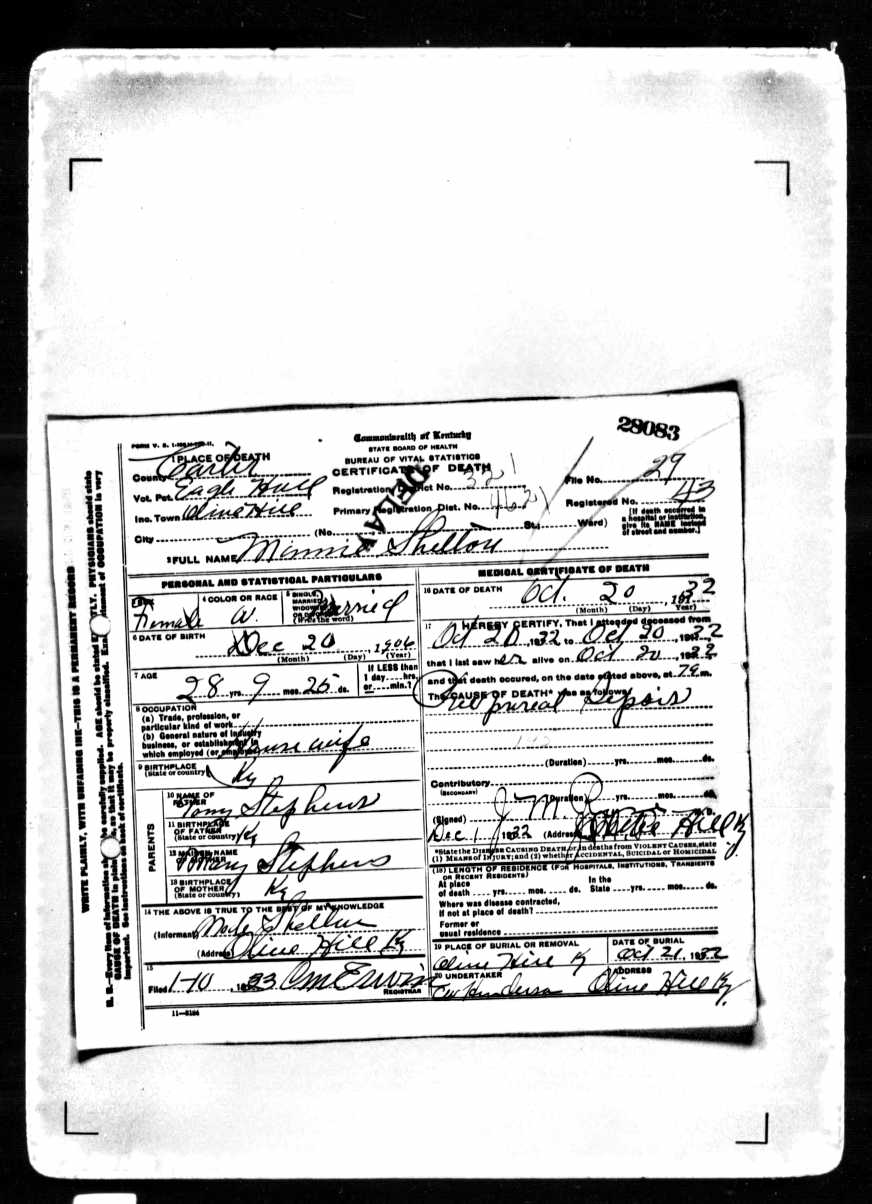 28083
Commonwealth of Kentucky
STATE BOARD OF HEALTH
BUREAU OF VITAL STATISTICS
CERTIFICATE OF DEATH
DELAY
1 PLACE OF DEATH
County Carter
Vot. Pct. Eagle Hall
Inc. Town Olive Hill
City
Registration District No. 321
Primary Registration Dist. No.
File No. 29
Registered No. 43
(No. St. Ward)
[If death occurred in
a hospital or institution,
give its NAME instead
of street and number.]
2 FULL NAME Minnie Shelton
PERSONAL AND STATISTICAL PARTICULARS
Female
4 COLOR OR RACE W.
5 SINGLE, MARRIED, WIDOWED, OR DIVORCED (Write the word) Married
6 DATE OF BIRTH Dec 20 1906
(Month) (Day) (Year)
7 AGE
28 yrs. 9 mos. 25 ds.
If LESS than
1 day hrs.
or min.?
8 OCCUPATION
(a) Trade, profession, or
particular kind of work
(b) General nature of industry
business, or establishment in
which employed (or employer) House wife
9 BIRTHPLACE
(State or country) Ky
PARENTS
10 NAME OF FATHER Tom Stephens
11 BIRTHPLACE OF FATHER (State or country) Ky
12 MAIDEN NAME OF MOTHER Mary Stephens
13 BIRTHPLACE OF MOTHER (State or country) Ky
14 THE ABOVE IS TRUE TO THE BEST OF MY KNOWLEDGE
(Informant) Shelton
(Address) Olive Hill Ky
15
Filed 1-10, 1933 CM Erwin
REGISTRAR
11—3184
MEDICAL CERTIFICATE OF DEATH
16 DATE OF DEATH Oct. 20, 1932
(Month) (Day) (Year)
17 I HEREBY CERTIFY, That I attended deceased from
Oct 20, 1932 to Oct 20, 1932
that I last saw her alive on Oct 20, 1932
and that death occurred, on the date stated above, at m.
The CAUSE OF DEATH* was as follows:
(Duration) yrs. mos. ds.
Contributory
(SECONDARY)
(Duration) yrs. mos. ds.
(Signed) J M
Dec 1 1932 (Address) Olive Hill Ky
*State the DISEASE CAUSING DEATH, or in deaths from VIOLENT CAUSES, state
(1) MEANS OF INJURY; and (2) whether ACCIDENTAL, SUICIDAL or HOMICIDAL
(18) LENGTH OF RESIDENCE (FOR HOSPITALS, INSTITUTIONS, TRANSIENTS
OR RECENT RESIDENTS)
At place of death yrs. mos. ds. In the State yrs. mos. ds.
Where was disease contracted,
If not at place of death?
Former or
usual residence
19 PLACE OF BURIAL OR REMOVAL Olive Hill Ky
DATE OF BURIAL Oct 21, 1932
20 UNDERTAKER Henderson
ADDRESS Olive Hill Ky.
WRITE PLAINLY, WITH UNFADING INK—THIS IS A PERMANENT RECORD